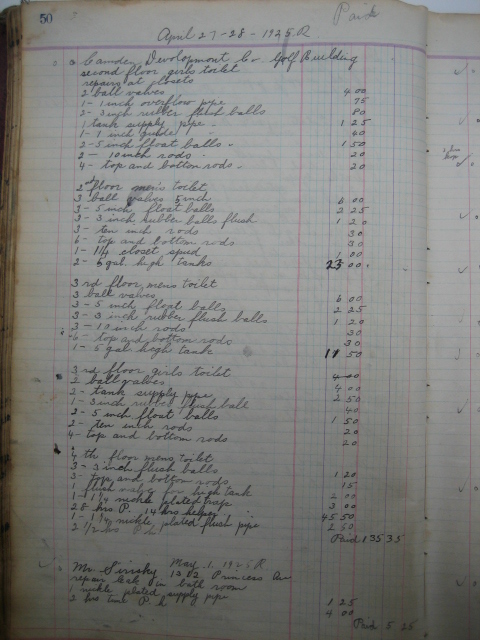 50
Paid
April 27-28-1925 R
Camden Devolopment Co Golf Building
second floor girls toilet
repairs at closets
2 ball valves 4 00
1- 1 inch overflow pipe 75
2- 3 inch rubber flush balls 80
1 tank supply pipe 1 25
1- 1 inch guide 40
2- 5 inch float balls 1 50
2- 10 inch rods 20
4- top and bottom rods 20
2nd floor mens toilet
3 ball valves 5 inch 6 00
3- 5 inch float balls 2 25
3- 3 inch rubber balls flush 1 20
3- ten inch rods 30
6- top and bottom rods 30
1- 1 1/4 closet spud 1 00
2- 5 gal high tanks 23 00
3rd floor mens toilet
3 ball valves 6 00
3- 5 inch float balls 2 25
3- 3 inch rubber flush balls 1 20
3- 10 inch rods 30
6- top and bottom rods 30
1- 5 gal high tank 11 50
3rd floor girls toilet
2 ball valves 4 00
2- tank supply pipe 2 50
1- 3 inch rubber flush ball 40
2- 5 inch float balls 1 50
2- ten inch rods 20
4- top and bottom rods 20
4th floor mens toilet
3- 3 inch flush balls 1 20
3- top and bottom rods 15
1 flush valve for high tank 2 00
1- 1 1/4 nickle plated trap 3 00
28 hrs P. 14 hrs helper 45 50
1- 1 1/4 nickle plated flush pipe 2 50
2 1/2 hrs
Paid 135 35
May 1 1925 R
Mr Sinsky 1322 Princess Av
repair leak in bath room
1 nickle plated supply pipe 1 25
2 hrs time P. h 4 00
Paid 5 25